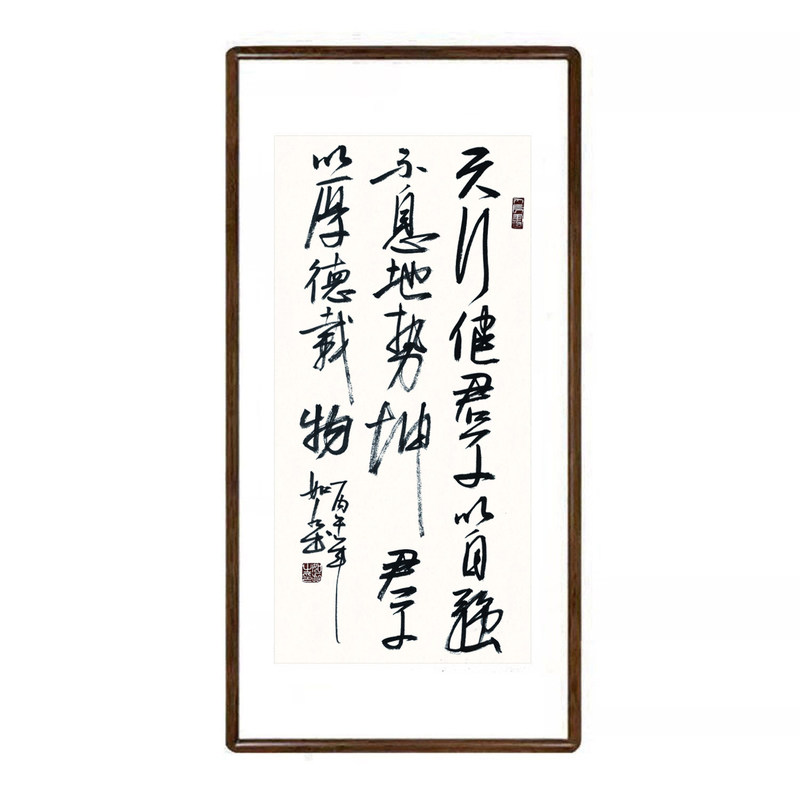 天行健君子以自强
不息地势坤君子
以厚德载物
丙午年